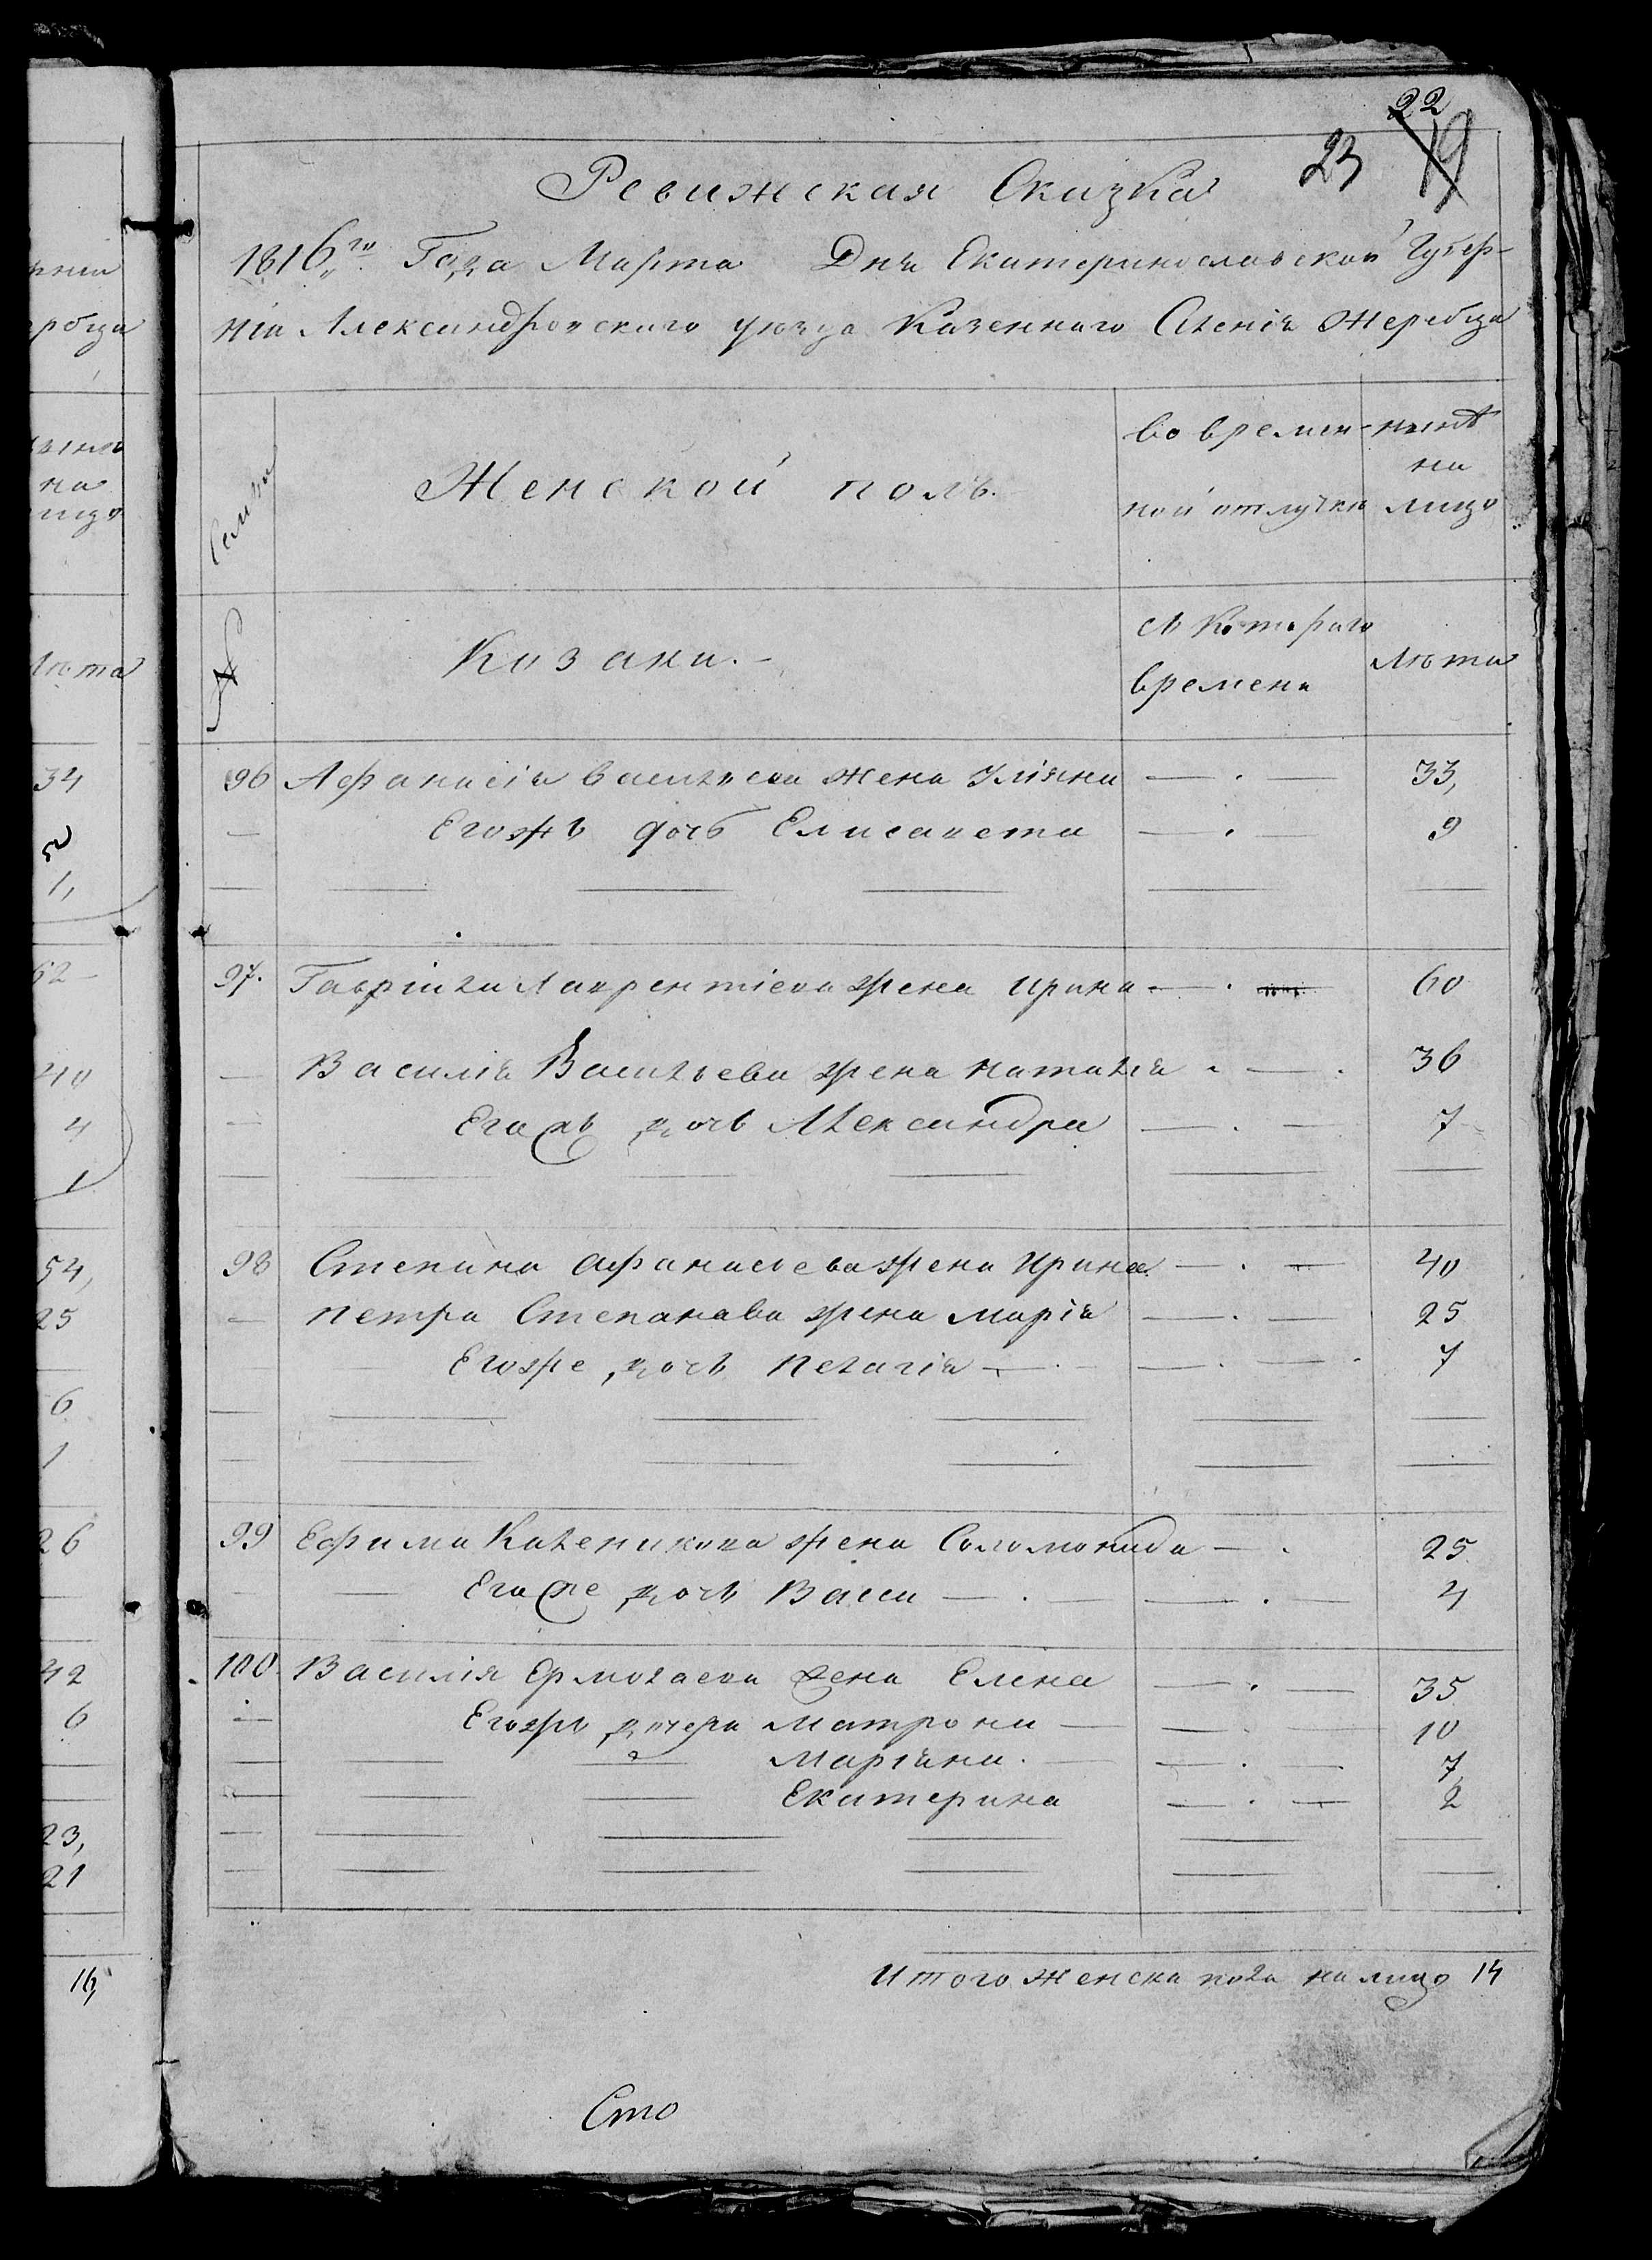 22
23 19
Ревижская Сказка
1816го Года Марта Дня Екатеринославской Губер-
ніи Александровского уезда Казенного Селенія Жеребца
Семьи
Женской полъ.
во времян- нынѣ
на
ной отлучки лицо
№
Козаки.
съ котораго
времени
Лета
96 Афанасія Васильева жена Уліяна 33,
Егожъ дочь Елисавета 9
97. Гавріила Лаврентіева жена Ирина 60
Василія Васильева жена Наталія 36
Егожъ дочь Александра 7
98 Степана Афанасьева жена Ирина 40
Петра Степанава жена Марія 25
Егоже дочь Пелагія 7
99 Ефима Каленикова жена Соломонида 25
Егоже дочь Васса 4
100 Василія Ермолаева жена Елена 35
Егожъ дочери Матрона 10
Маріяна 7
Екатерина 2
Итого женска пола налицо 14
Сто
рніи
ребца
нынѣ
на
лицо
Лета
34
5
1,
62
40
4
1
54,
25
6
1
26
42
6
23,
21
16,